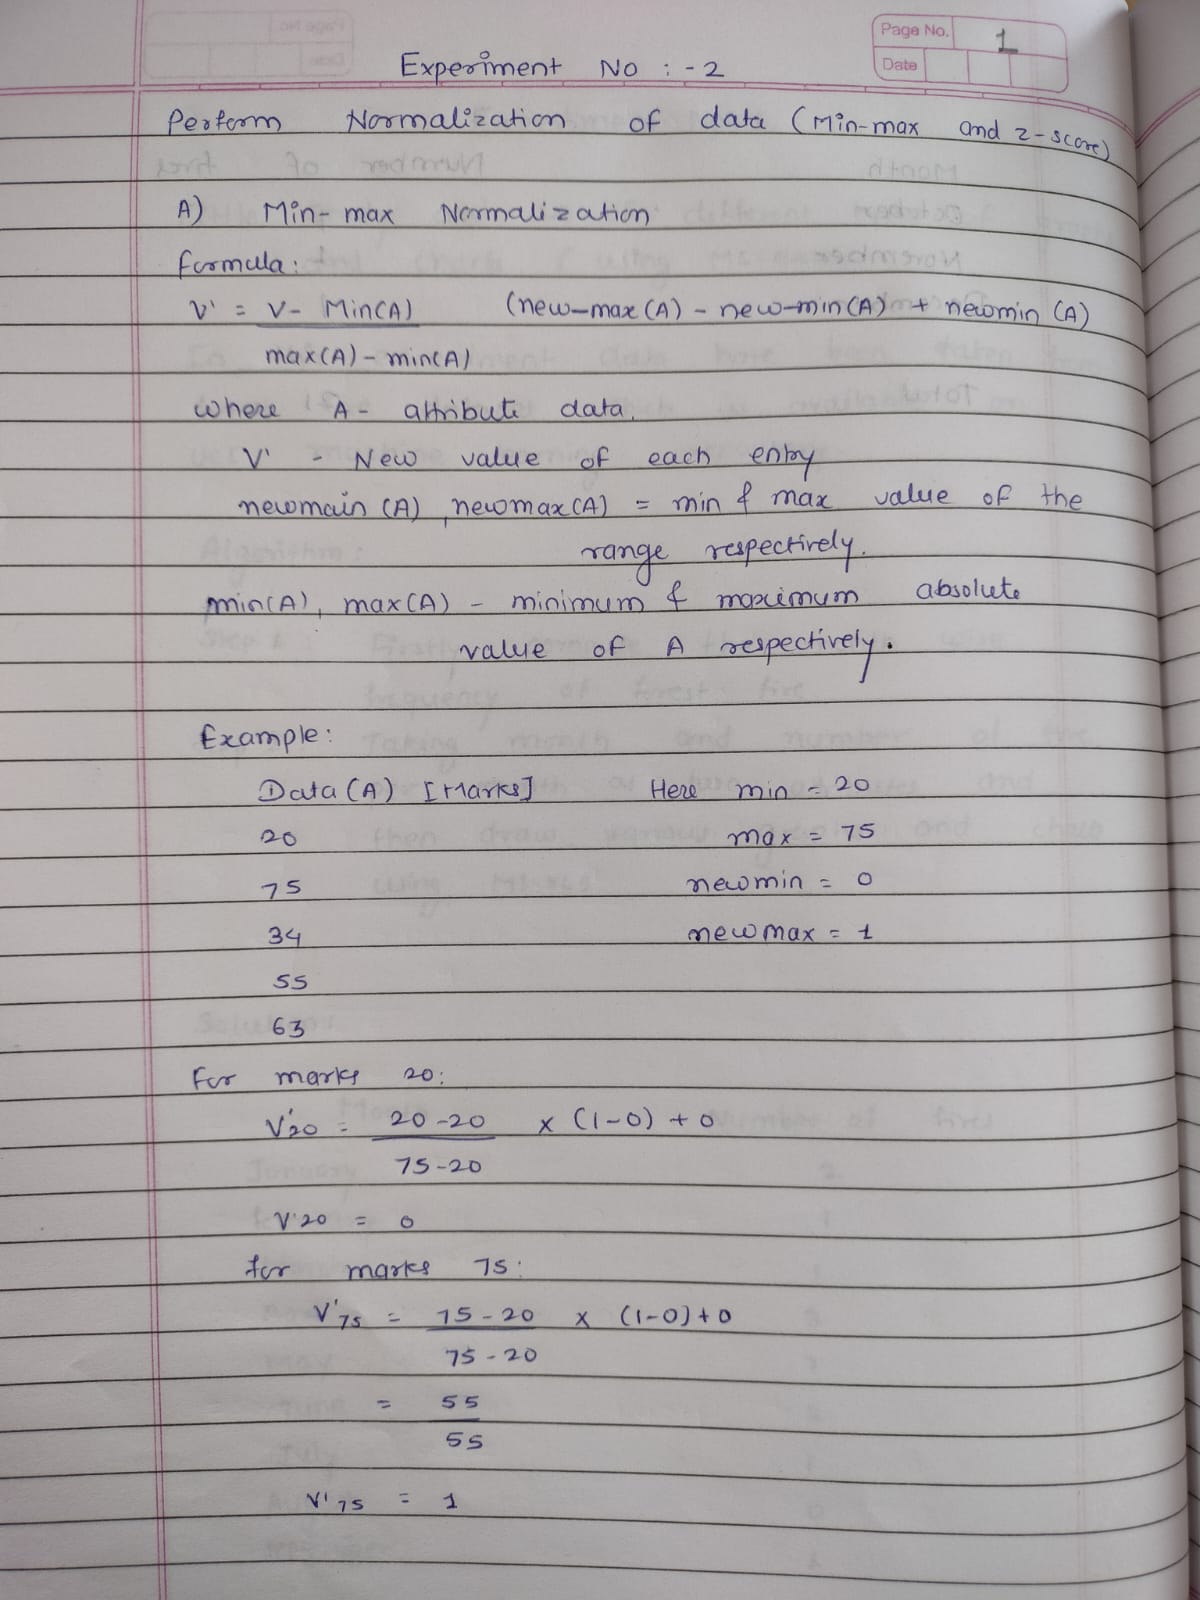 Page No. 1
Date
Experiment No : - 2
Perform Normalization of data (Min-max and z-score)
A) Min-max Normalization
formula:
V' = V - Min(A) (new-max(A) - new-min(A) + newmin (A)
max(A) - min(A)
where A - attribute data.
V' - New value of each entry
newmain (A), newmax(A) = min & max value of the
range respectively.
min(A), max(A) - minimum & maximum absolute
value of A respectively.
Example:
Data (A) [Marks] Here min = 20
20 max = 75
75 newmin = 0
34 newmax = 1
55
63
For marks 20:
V'20 = 20-20 x (1-0) + 0
75-20
V'20 = 0
for marks 75:
V'75 = 75-20 x (1-0)+0
75-20
= 55
55
V'75 = 1